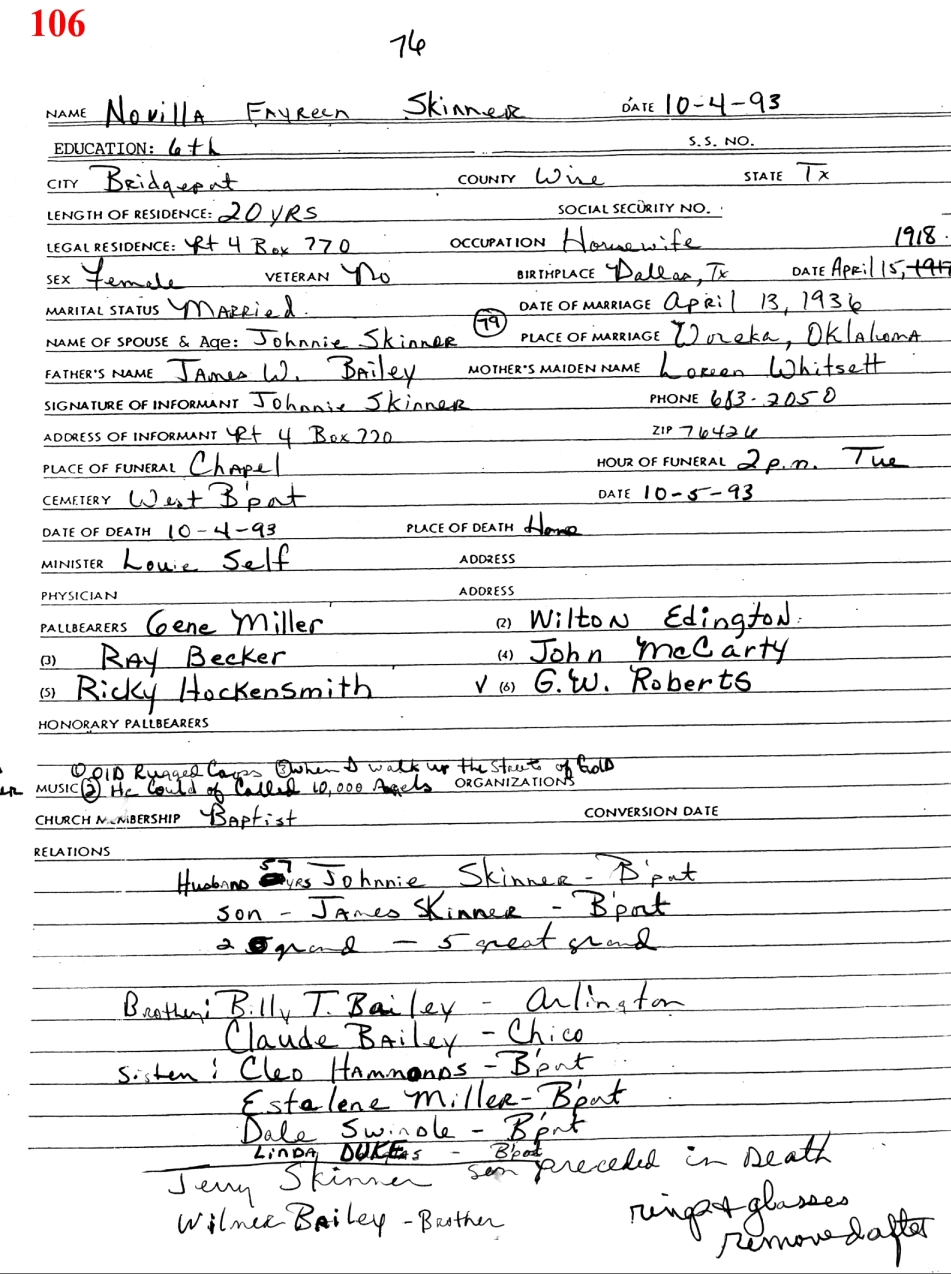 106
76
NAME Novilla Fayreen Skinner DATE 10-4-93
EDUCATION: 6th S.S. NO.
CITY Bridgeport COUNTY Wise STATE Tx
LENGTH OF RESIDENCE: 20 YRS SOCIAL SECURITY NO.
LEGAL RESIDENCE: Rt 4 Box 770 OCCUPATION Housewife 1918
SEX Female VETERAN No BIRTHPLACE Dallas, Tx DATE April 15, 1917
MARITAL STATUS Married DATE OF MARRIAGE April 13, 1936
NAME OF SPOUSE & Age: Johnnie Skinner 79 PLACE OF MARRIAGE Wureka, Oklahoma
FATHER'S NAME James W. Bailey MOTHER'S MAIDEN NAME Loreen Whitsett
SIGNATURE OF INFORMANT Johnnie Skinner PHONE 683-2050
ADDRESS OF INFORMANT Rt 4 Box 770 ZIP 76426
PLACE OF FUNERAL Chapel HOUR OF FUNERAL 2 p.m. Tue
CEMETERY West B'port DATE 10-5-93
DATE OF DEATH 10-4-93 PLACE OF DEATH Home
MINISTER Louie Self ADDRESS
PHYSICIAN ADDRESS
PALLBEARERS Gene Miller (2) Wilton Edington
(3) Ray Becker (4) John McCarty
(5) Ricky Hockensmith V (6) G.W. Roberts
HONORARY PALLBEARERS
① Old Rugged Cross ③ When I walk up the Streets of Gold
MUSIC ② He Could of Called 10,000 Angels ORGANIZATIONS
CHURCH MEMBERSHIP Baptist CONVERSION DATE
RELATIONS
Husband 57 yrs Johnnie Skinner - B'port
son - James Skinner - B'port
2 grand - 5 great grand
Brother: Billy T. Bailey - Arlington
Claude Bailey - Chico
Sister: Cleo Hammonds - B'port
Estalene Miller - B'port
Dale Swindle - B'port
Linda - B'port
Jerry Skinner son preceded in Death
Wilmer Bailey - Brother
rings & glasses
removed after